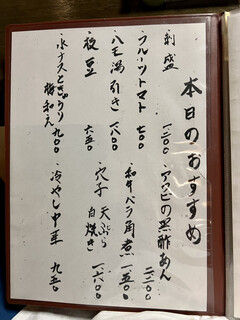 本日のおすすめ
・刺盛 一二〇〇
・フルーツトマト 七〇〇
・八王潟引き 一八〇〇
・枝豆 六五〇
・水ナスときゅうり
梅和え 九〇〇
・アワビの黒酢あん 二二〇〇
・和牛バラ角煮 一五〇〇
・穴子 天ぷら
白焼き 一六〇〇
・冷やし中華 九五〇